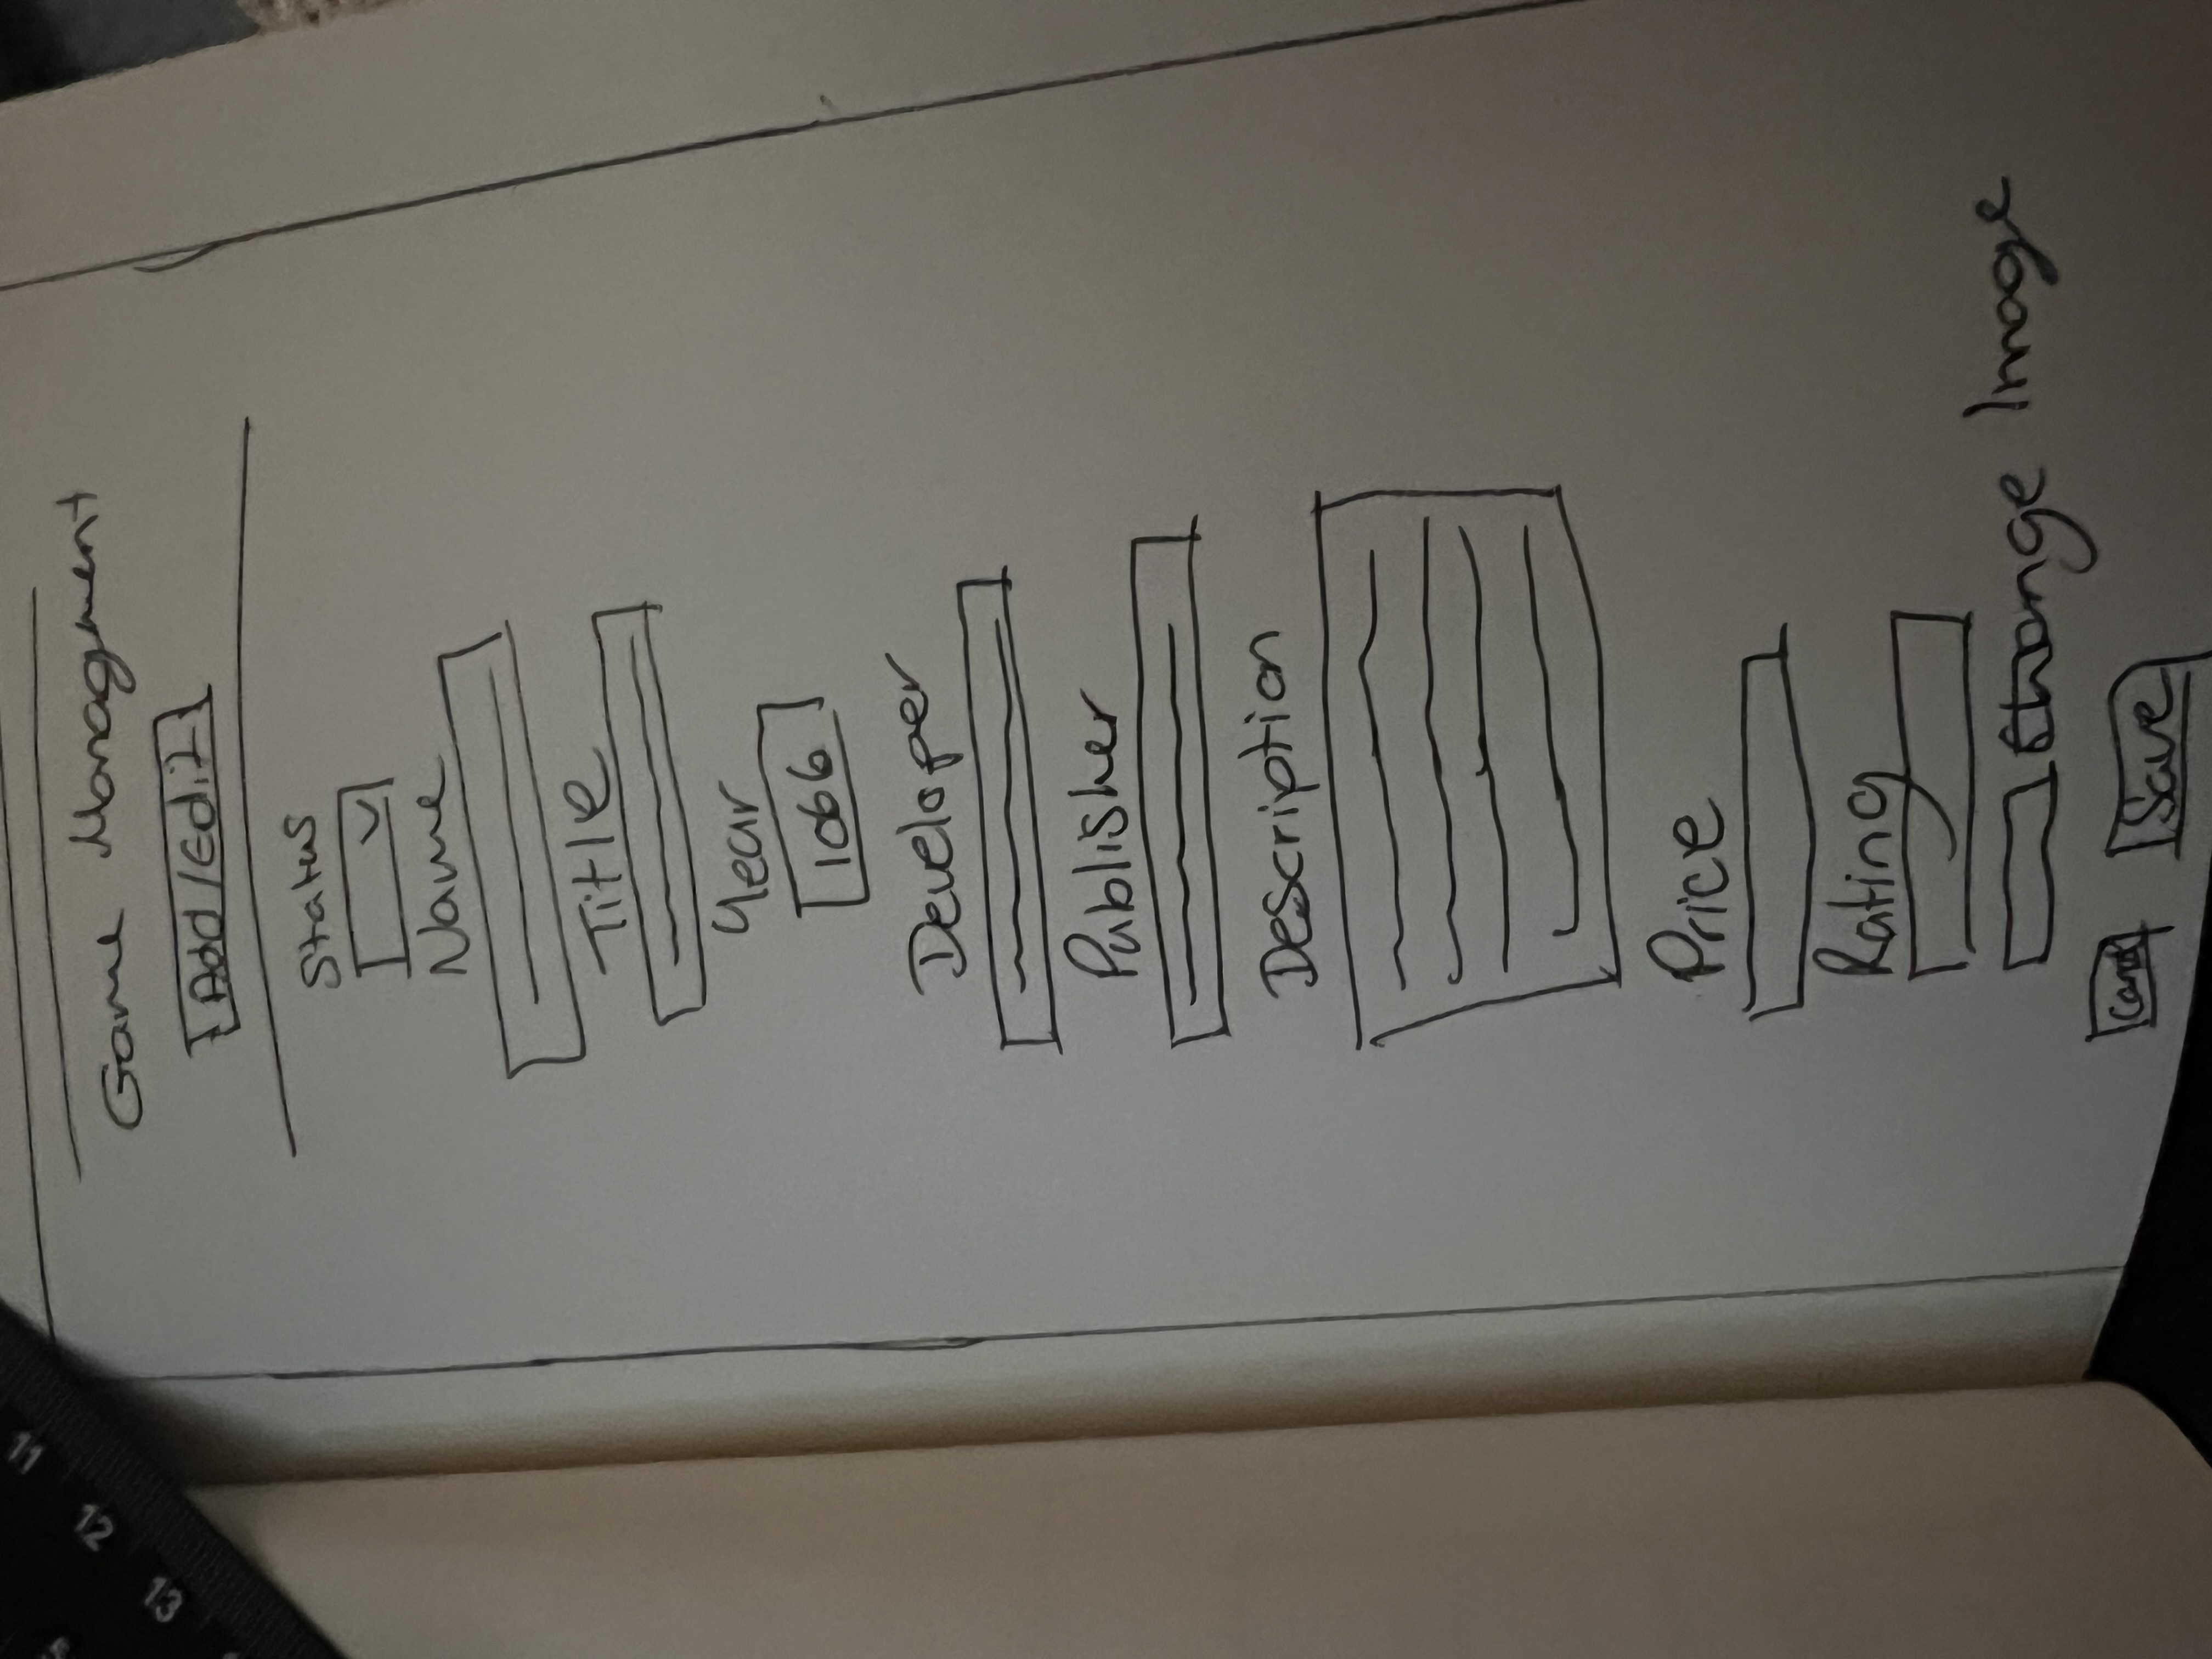 Game Management
Add/Edit
Status
Name
Title
Year
1066
Developer
Publisher
Description
Price
Rating
Change Image
Cancel Save
11
12
13